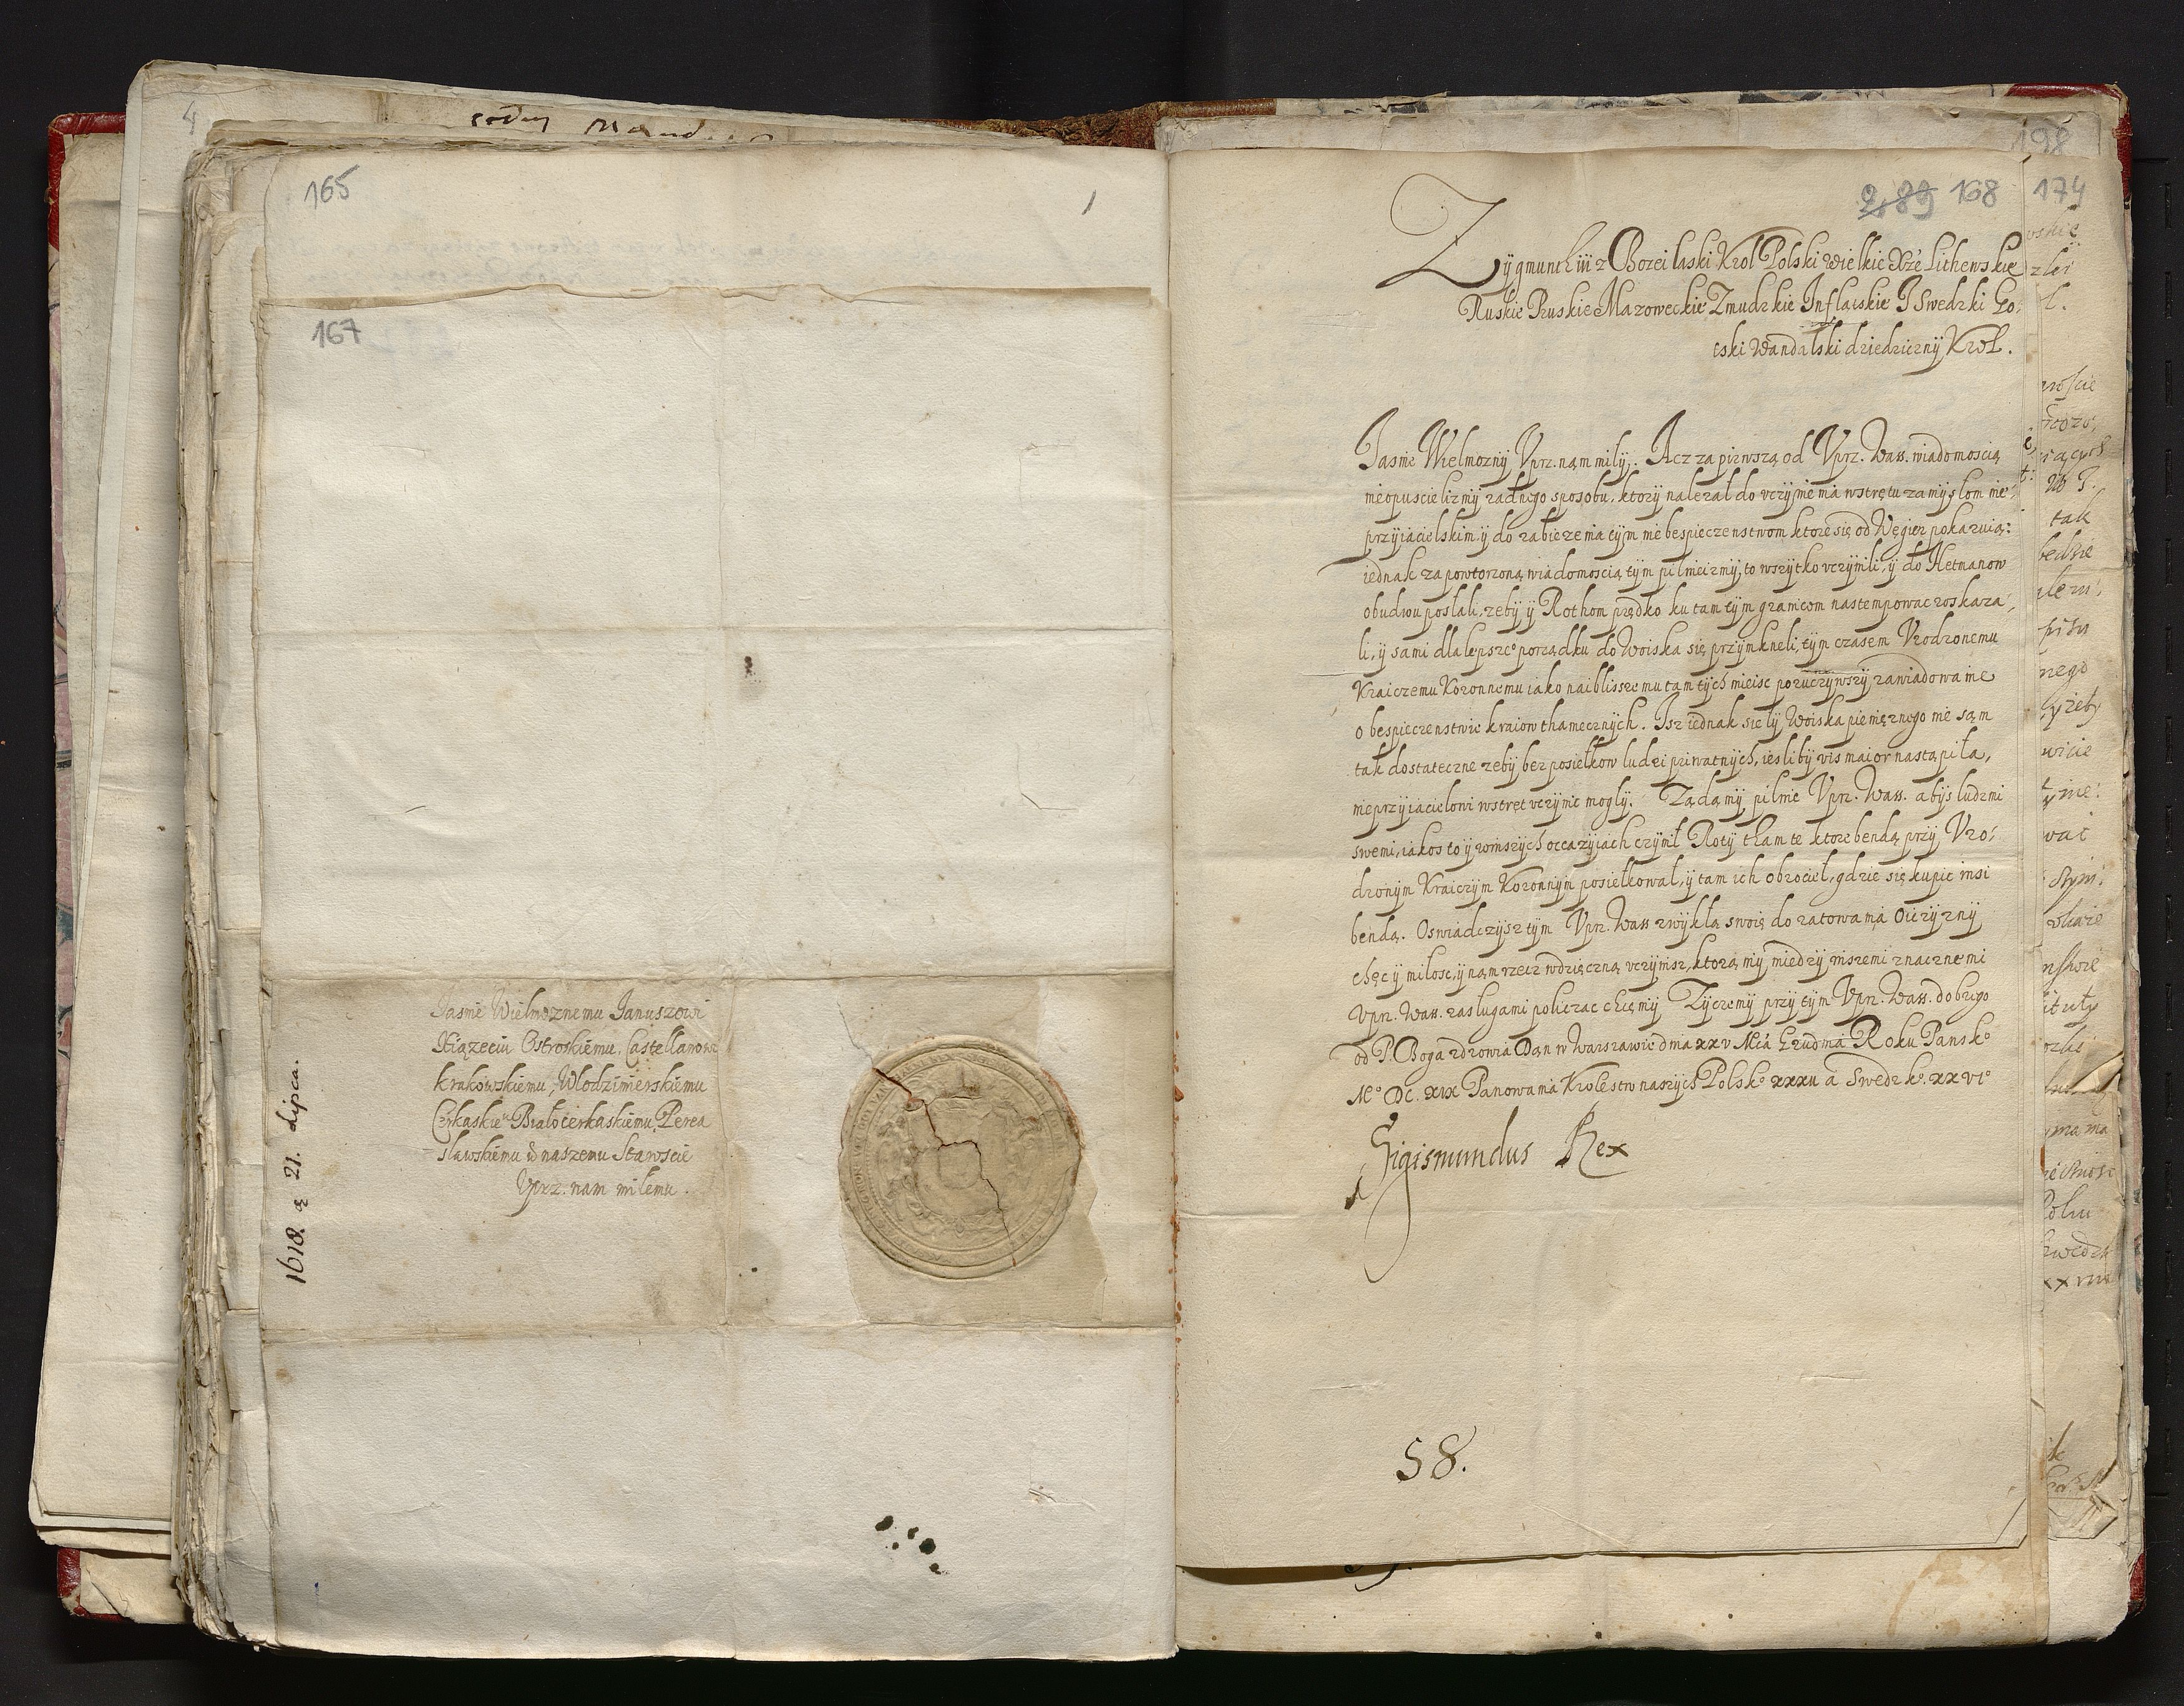 165
167
Iasnie Wielmoznemu Januszowi
Xiązęciu Ostroskiemu, Castellanowi
krakowskiemu, Wlodzimerskiemu
Czerkaskie° Białocerkaskiemu, Perea
slawskiemu ɞ naszemu Staroscie
Uprz. nam miłemu.
1618. ą 21. Lipca.
198
2, 89 168 174
Zÿgmunth iii z Bozei laski Krol Polski wielkie Xże Lithewskie
Ruskie Pruskie Mazoweckie Zmudzkie Inflatskie I Swedzki Go-
tski Wandalski dziedzicznÿ Krol.
Jasnie Wielmoznÿ Vprz. nam miłÿ. Acz za pierwszą od Vprz. Wass. wiadomoscią
nieopuscielizmÿ zadnego sposobu, ktorÿ nalezał do vczÿnienia wstrętu zamÿslom nie-
przÿiacielskim, ÿ do zabiezenia tÿm niebespieczenstwom ktore się od Węgier pokazuią:
iednak za powtorzoną wiadomoscią tÿm pilnieizmÿ to wszÿtko vczÿnili, ÿ do Hetmanow
obudwu posłali, zebÿ ÿ Rothom prędko ku tamtÿm granicom nastempowac roskaza-
li, ÿ sami dla lepsze° porządku do Woiska się przÿmkneli, tÿm czasem Vrodzonemu
Kraiczemu Koronnemu iako naiblisszemu tamtÿch mieisc poruczÿwszÿ zawiadowanie
o bespieczenstwie kraiow thamecznÿch. Isz iednak sielÿ Woiska pienięznego nie są
tak dostateczne zebÿ bez posiełkow ludzi priwatnÿch, iesli bÿ vis maior nastąpiła,
nieprzÿiacielowi wstręt vczÿnic moglÿ. Ządamÿ pilnie Vprz. Wass. abÿs ludzmi
swemi, iakos to ÿ w inszÿch occazÿiach czÿnił Rotÿ tham te ktore bendą przÿ Vro-
dzonÿm Kraiczÿm Koronnÿm posiełkował, ÿ tam ich obrocieł, gdzie się kupic insi
bendą. Oswiadczÿsz tÿm Vprz. Wass zwÿkłą swoię do ratowania Oiczÿznÿ
chęc ÿ miłosc, ÿ nam rzecz wdzięczną vczÿnisz, ktorą mÿ miedzÿ inszemi znacznemi
Vprz. Wass. zaslugami policzac chcemÿ. Zÿczemÿ przÿ tÿm Vprz. Wass. dobrego
od P. Boga zdrowia Dan w Warszawie dnia xxv Mca Grudnia Roku Panske°
M° DC. XIX Panowania Krolestw naszÿch Polske° xxxii a Swedzke° xxvi°
Sigismundus Rex
58.